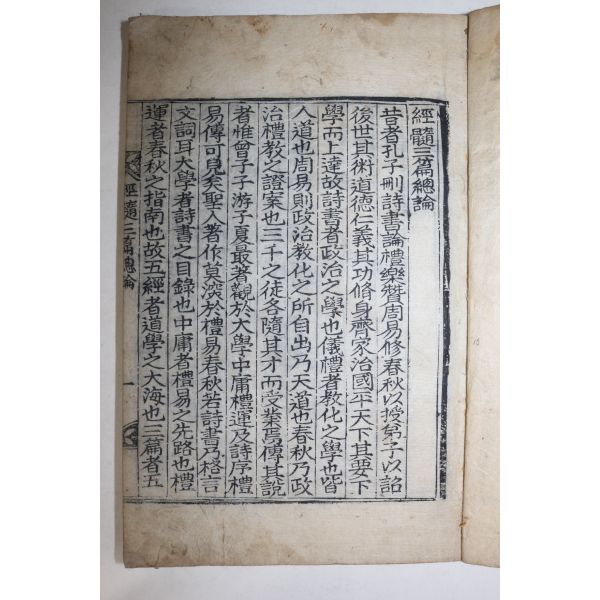 經髓三篇總論
昔者孔子刪詩書論禮樂贊周易修春秋以授弟子以詔
後世其術道德仁義其功脩身齊家治國平天下其要下
學而上達故詩書者政治之學也儀禮者敎化之學也皆
人道也周易則政治敎化之所自出乃天道也春秋乃政
治禮敎之證案也三千之徒各隨其才而受業焉傳其說
者惟曾子子游子夏最著觀於大學中庸禮運及詩序禮
易傳可見矣聖人著作莫深於禮易春秋若詩書乃格言
文詞耳大學者詩書之目錄也中庸者禮易之先路也禮
運者春秋之指南也故五經者道學之大海也三篇者五
經髓三篇總論 一